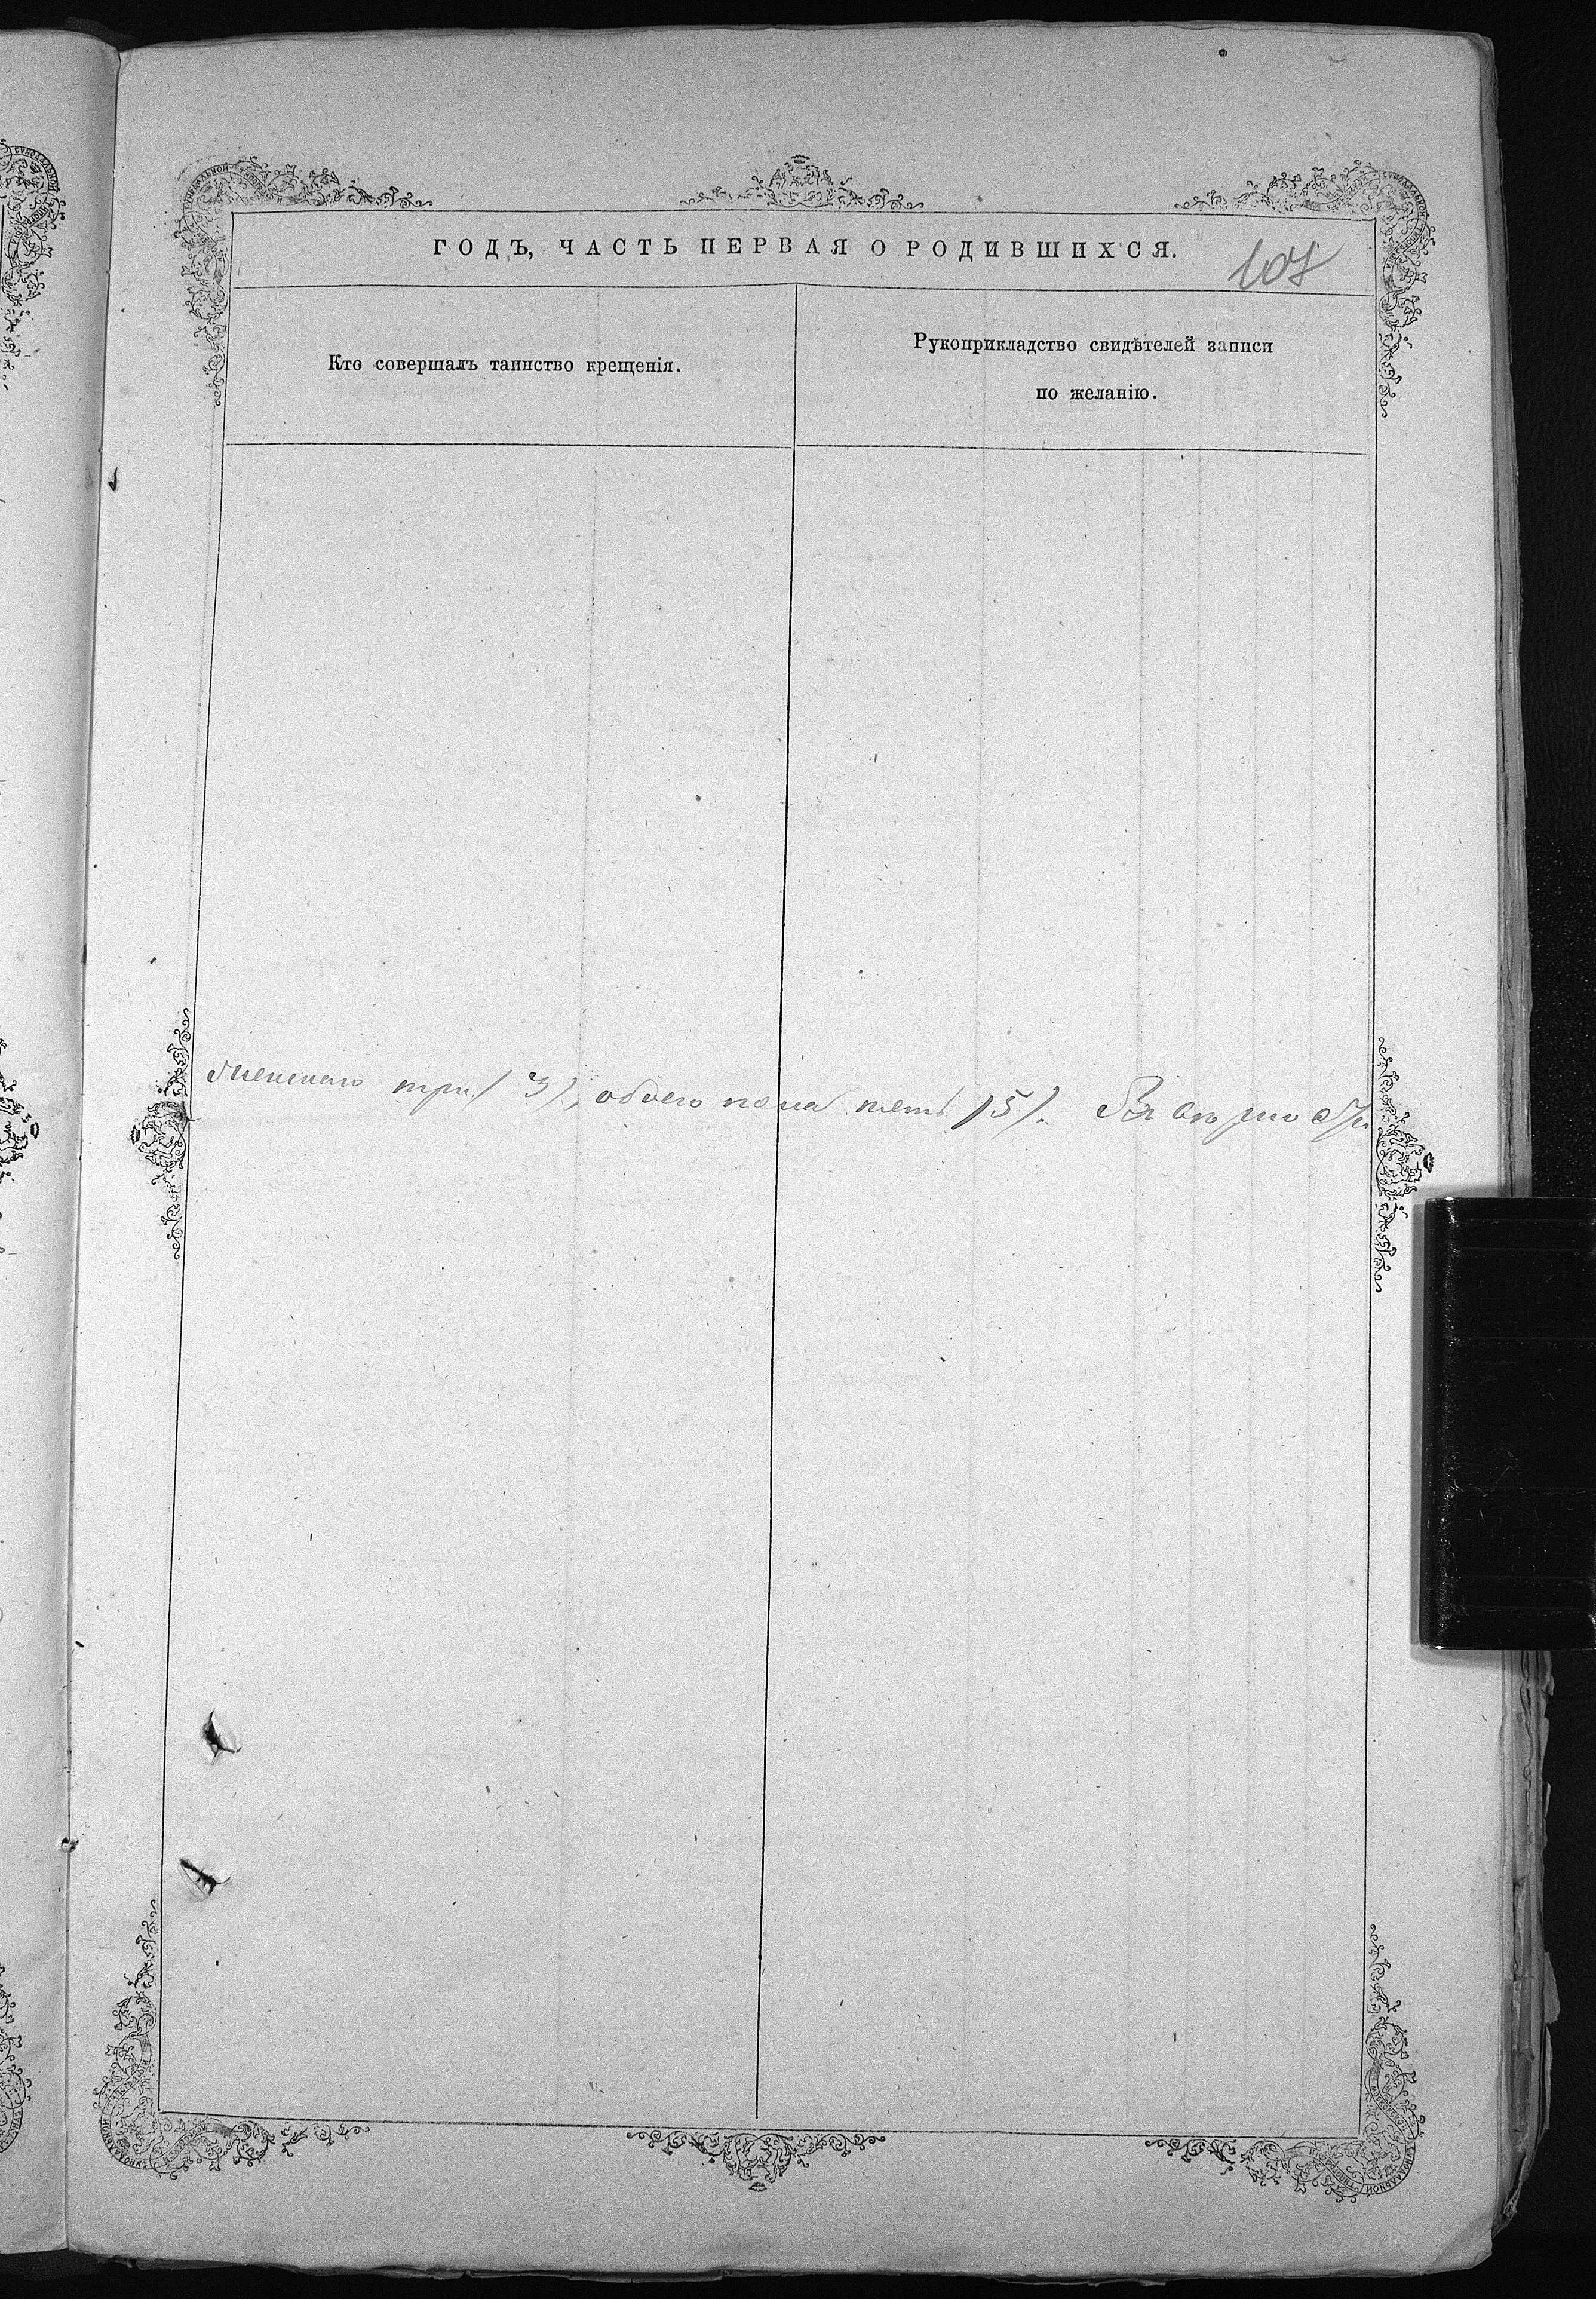 ГОДЪ, ЧАСТЬ ПЕРВАЯ О РОДИВШИХСЯ.
107
Кто совершалъ таинство крещенія.
Рукоприкладство свидѣтелей записи
по желанію.
женскаго три (3), обоего пола пять (5).